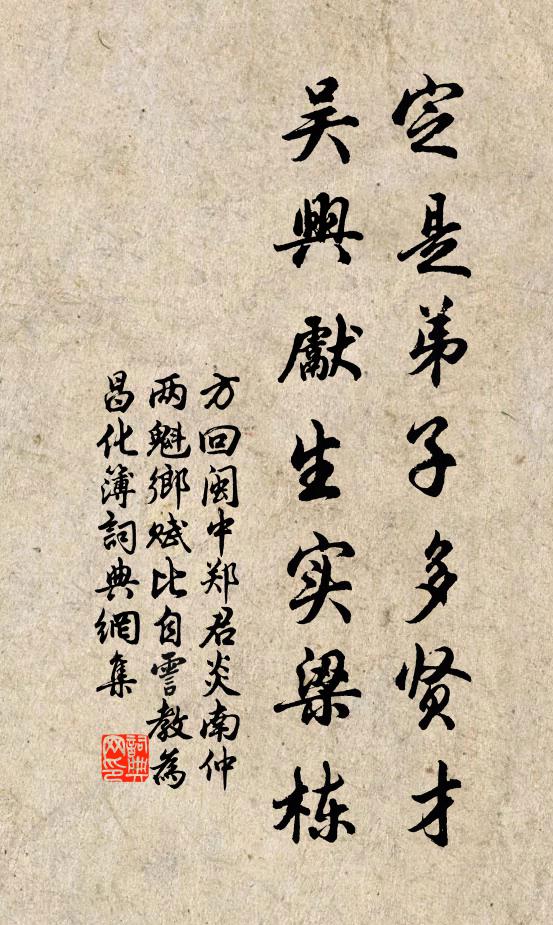 定是弟子多贤才
吴興獻生实梁栋
方回闽中郑君炎南仲
两魁鄉赋比自霅教為
昌化簿詞典網集
詞典网印